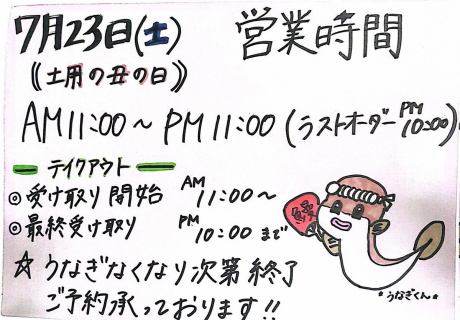 7月23日(土) 営業時間
《土用の丑の日》
AM11:00～PM11:00(ラストオーダーPM10:00)
テイクアウト
◎受け取り開始 AM11:00～
◎最終受け取り PM10:00まで
☆うなぎなくなり次第終了
ご予約承っております!!
うなぎくん